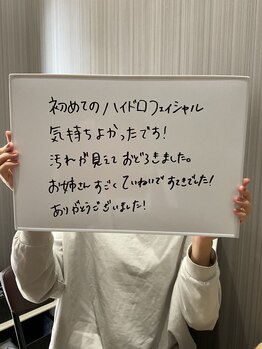 初めてのハイドロフェイシャル
気持ちよかったです!
汚れが見えておどろきました。
お姉さんすごくていねいですてきでした!
ありがとうございました!